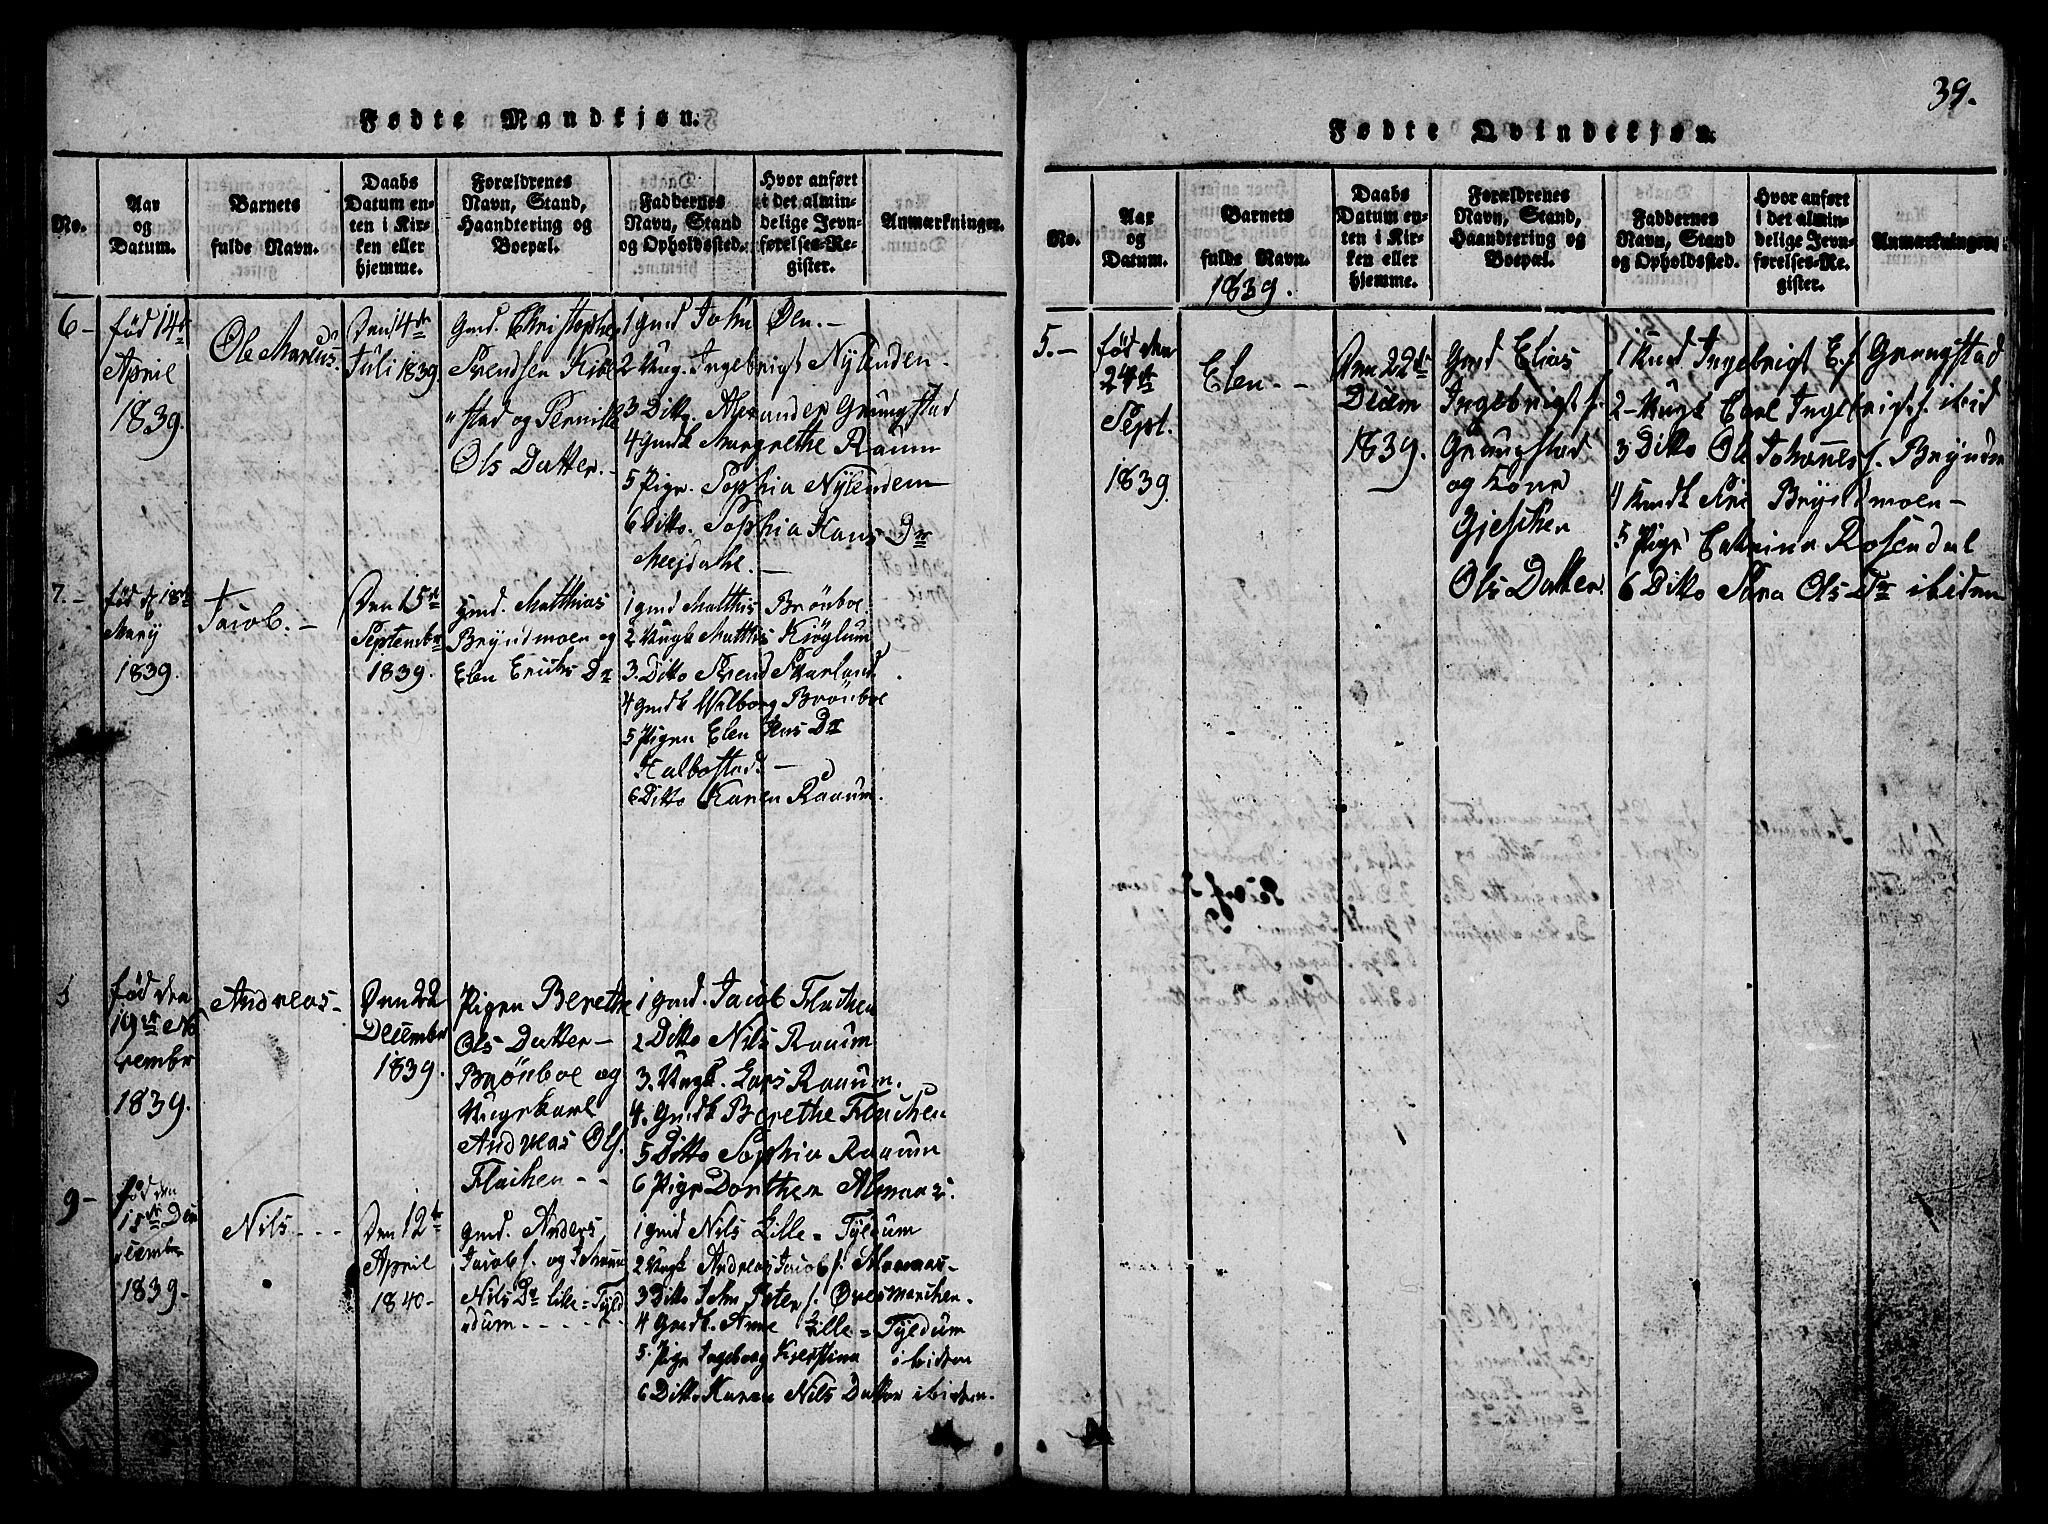 39.
Fødte Mandkjøn.
No.
Aar
og
Datum.
Barnets
fulde Navn.
Daabs
Datum en-
ten i Kir-
ken eller
hjemme.
Forældrenes
Navn, Stand,
Haandtering og
Boepæl.
Faddernes
Navn, Stand
og Opholdssted.
Hvor anført
i det almin-
delige Jevn-
førelses-Re-
gister.
Anmærkninger.
6 -
fød 14de
April
1839.
Ole Marius.
Den 14de
Juli 1839.
Gmd. Christopher
Svendsen Kibe
"stad og Pernille
Ols Datter. -
1 Gmd John Øen. -
2 Ung. Ingebrigt Nylenden -
3 Ditto. Alexander Grungstad
4 Gmdk Margrethe Raaum
5 Pigr. Sophia Nylendem
6 Ditto. Sophia Hans Dr
Meejdahl. -
7. -
fød d 18de
1839.
Jacob. -
Den 15de
Septembr
1839.
Gmd. Matthias
Bryndmoen og
Elen Erichs Dr
1 Gmd Matthis Brönboe
2 Ungk Matthis Kiøglum
3. Ditto Svend Skarland.
4 Gmdk Walborg Brönboe
5 Pigen Elen Jens Dr
Halbostad. -
6 Ditto Karen Raaum.
fød den
19de No
vembr
1839.
Andreas -
Den 22
Decembr
1839.
Pigen Berethe
Ols Datter -
Brönboe og
Ungkarl
Andreas Ols.
Flaichen - -
1 Gmd. Jacob Flaichen
2 Ditto Nils Raaum
3. Ungk. Lars Raaum.
4. Gmdk Berethe Flaichen
5 Ditto Sophia Raaum
6 Pigr Dorthea Almaas.
9 -
fød den
15de De
cembr
1839 -
Nils - - -
Den 12te
April
1840 -
Gmd. Anders
Jacobs. og Johanna
Nils Dr Lille = Tyld
"dum - - - - -
1 Gmd Nils Lille = Tyldum
2 Ungk Andreas Jacobs. Almaas -
3 Ditto John Peters. Øvesmarchen.
4 Gmdk. Anne Lille = Tyldum
5. Pigr Ingeborg Kierstina ibidem
6 Ditto Karen Nils Datter ibidem.
Fødte Qvindekjøn.
No.
Aar
og
Datum.
Barnets
fulde Navn.
Daabs
Datum en-
ten i Kir-
ken eller
hjemme.
Forældrenes
Navn, Stand,
Haandtering og
Boepæl.
Faddernes
Navn, Stand
og Opholdssted.
Hvor anført
i det almin-
delige Jevn-
førelses-Re-
gister.
Anmærkninger.
1839.
5. -
fød den
24de
Sept.
1839
Elen - -
Den 22de
Decem
1839.
Gmd Elias
Ingebrigts.
Grungstad
og Kone
Gjeschen
Ols Datter.
1 Gmd Ingebrigt E. Grungstad
2 - Ungk Carl Ingebrigts. ibid
3 Ditto Ole Johannes. Bryndm
4 Gmdk Siri Bryndmoen -
5 Pigr Cathrina Rosendal
6 Ditto Sara Ols Dr ibidem